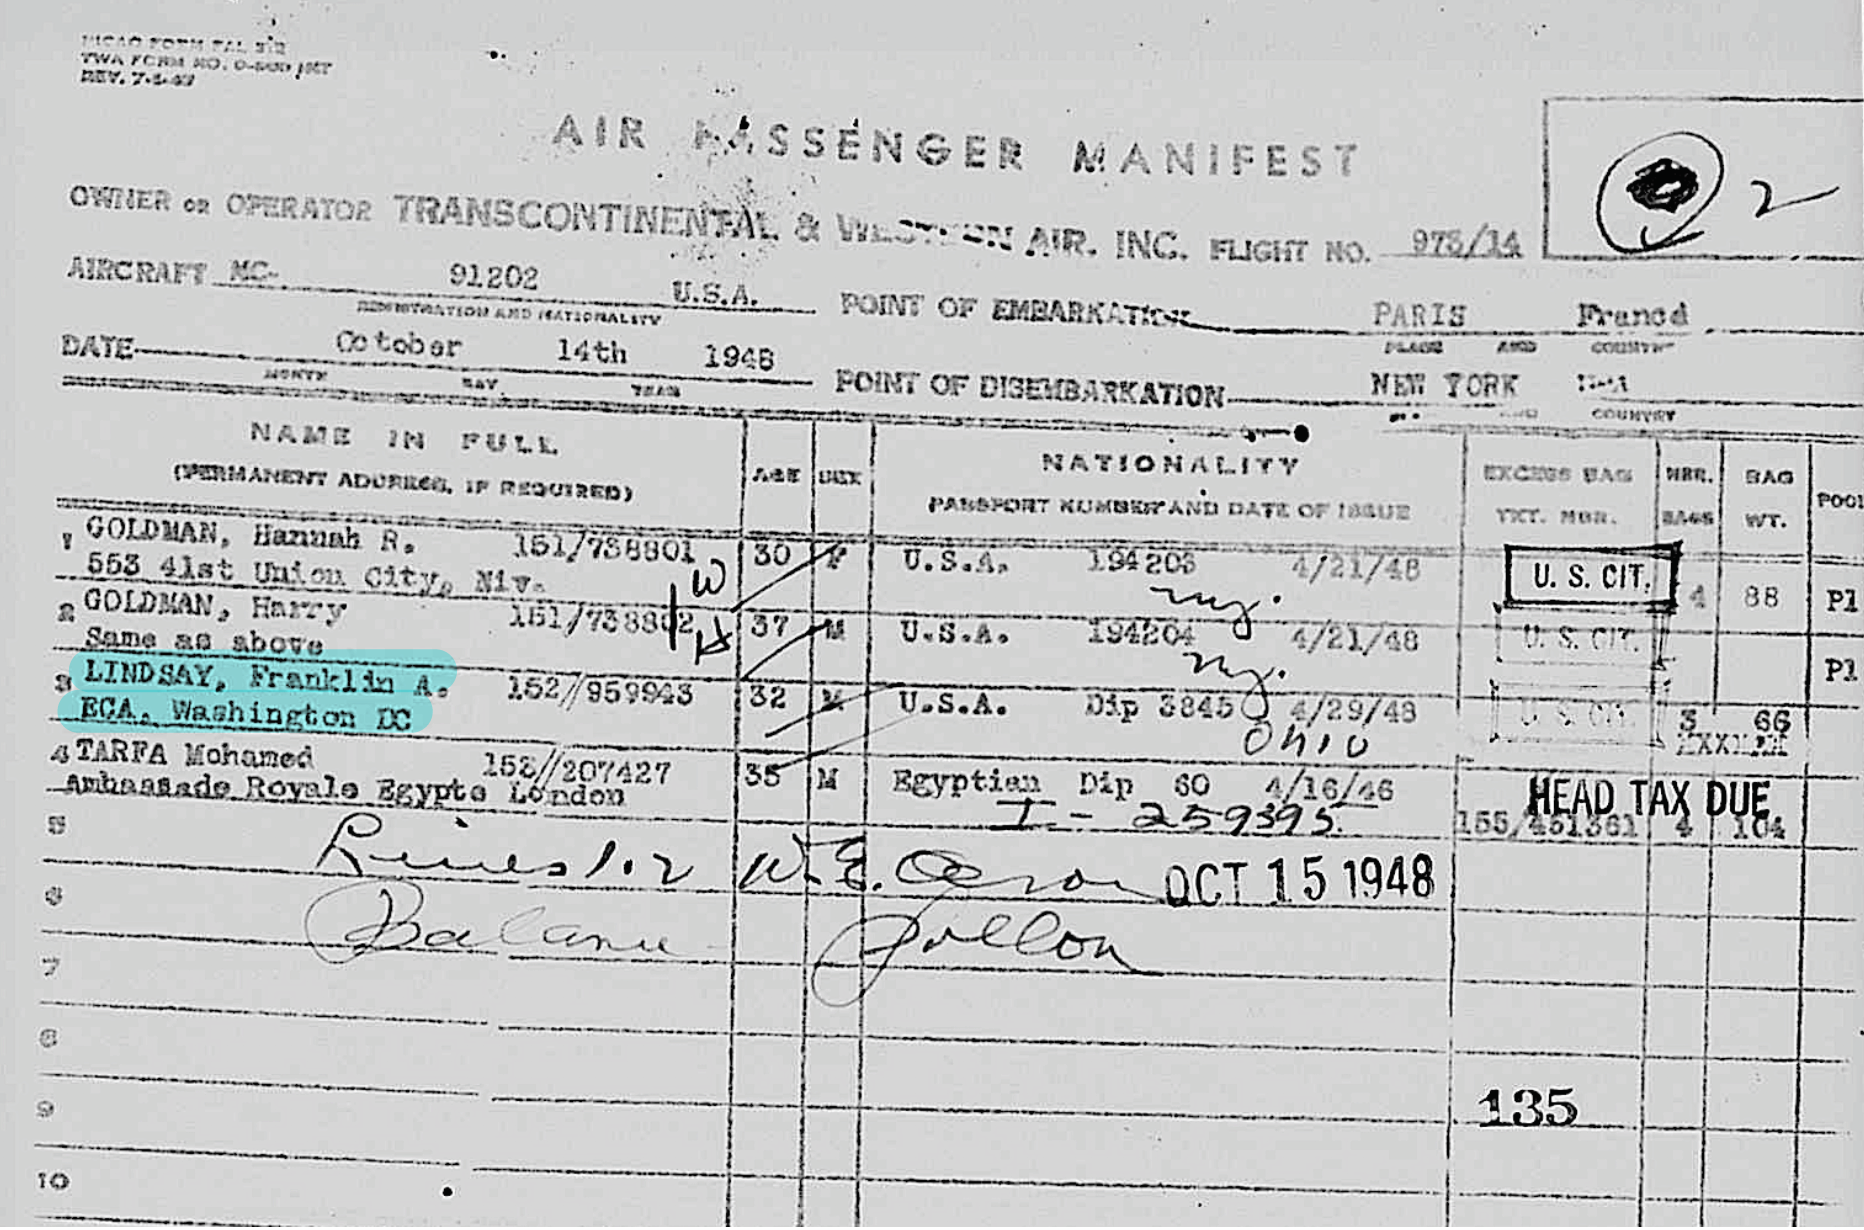 TWA FORM NO.
REV.
AIR PASSENGER MANIFEST
2
OWNER OR OPERATOR TRANSCONTINENTAL & WESTERN AIR. INC. FLIGHT NO. 975/14
AIRCRAFT NC- 91202 U.S.A. POINT OF EMBARKATION PARIS France
REGISTRATION AND NATIONALITY PLACE AND COUNTRY
DATE October 14th 1948 POINT OF DISEMBARKATION NEW YORK
MONTH DAY YEAR AND COUNTRY
NAME IN FULL AGE SEX NATIONALITY EXCESS BAG NBR. BAG
(PERMANENT ADDRESS, IF REQUIRED) PASSPORT NUMBER AND DATE OF ISSUE TKT. NBR. BAGS WT.
1 GOLDMAN, Hannah R. 151/738801 30 F U.S.A. 194203 4/21/48 U. S. CIT. 4 88 Pl
553 41st Union City, W ny.
2 GOLDMAN, Harry 151/738802 37 M U.S.A. 194204 4/21/48 U. S. CIT. Pl
Same as above H ny.
3 LINDSAY, Franklin A. 152//959943 32 M U.S.A. Dip 3845 4/29/48 U. S. CIT. 3 66
ECA, Washington DC Ohio
4 TARFA Mohamed 153//207427 35 M Egyptian Dip 60 4/16/46 HEAD TAX DUE
Ambassade Royale Egypte London I - 259395 155/451361 4 104
5 Lines 1.2 W.E. OCT 15 1948
6 Balance
7
8
9 135
10